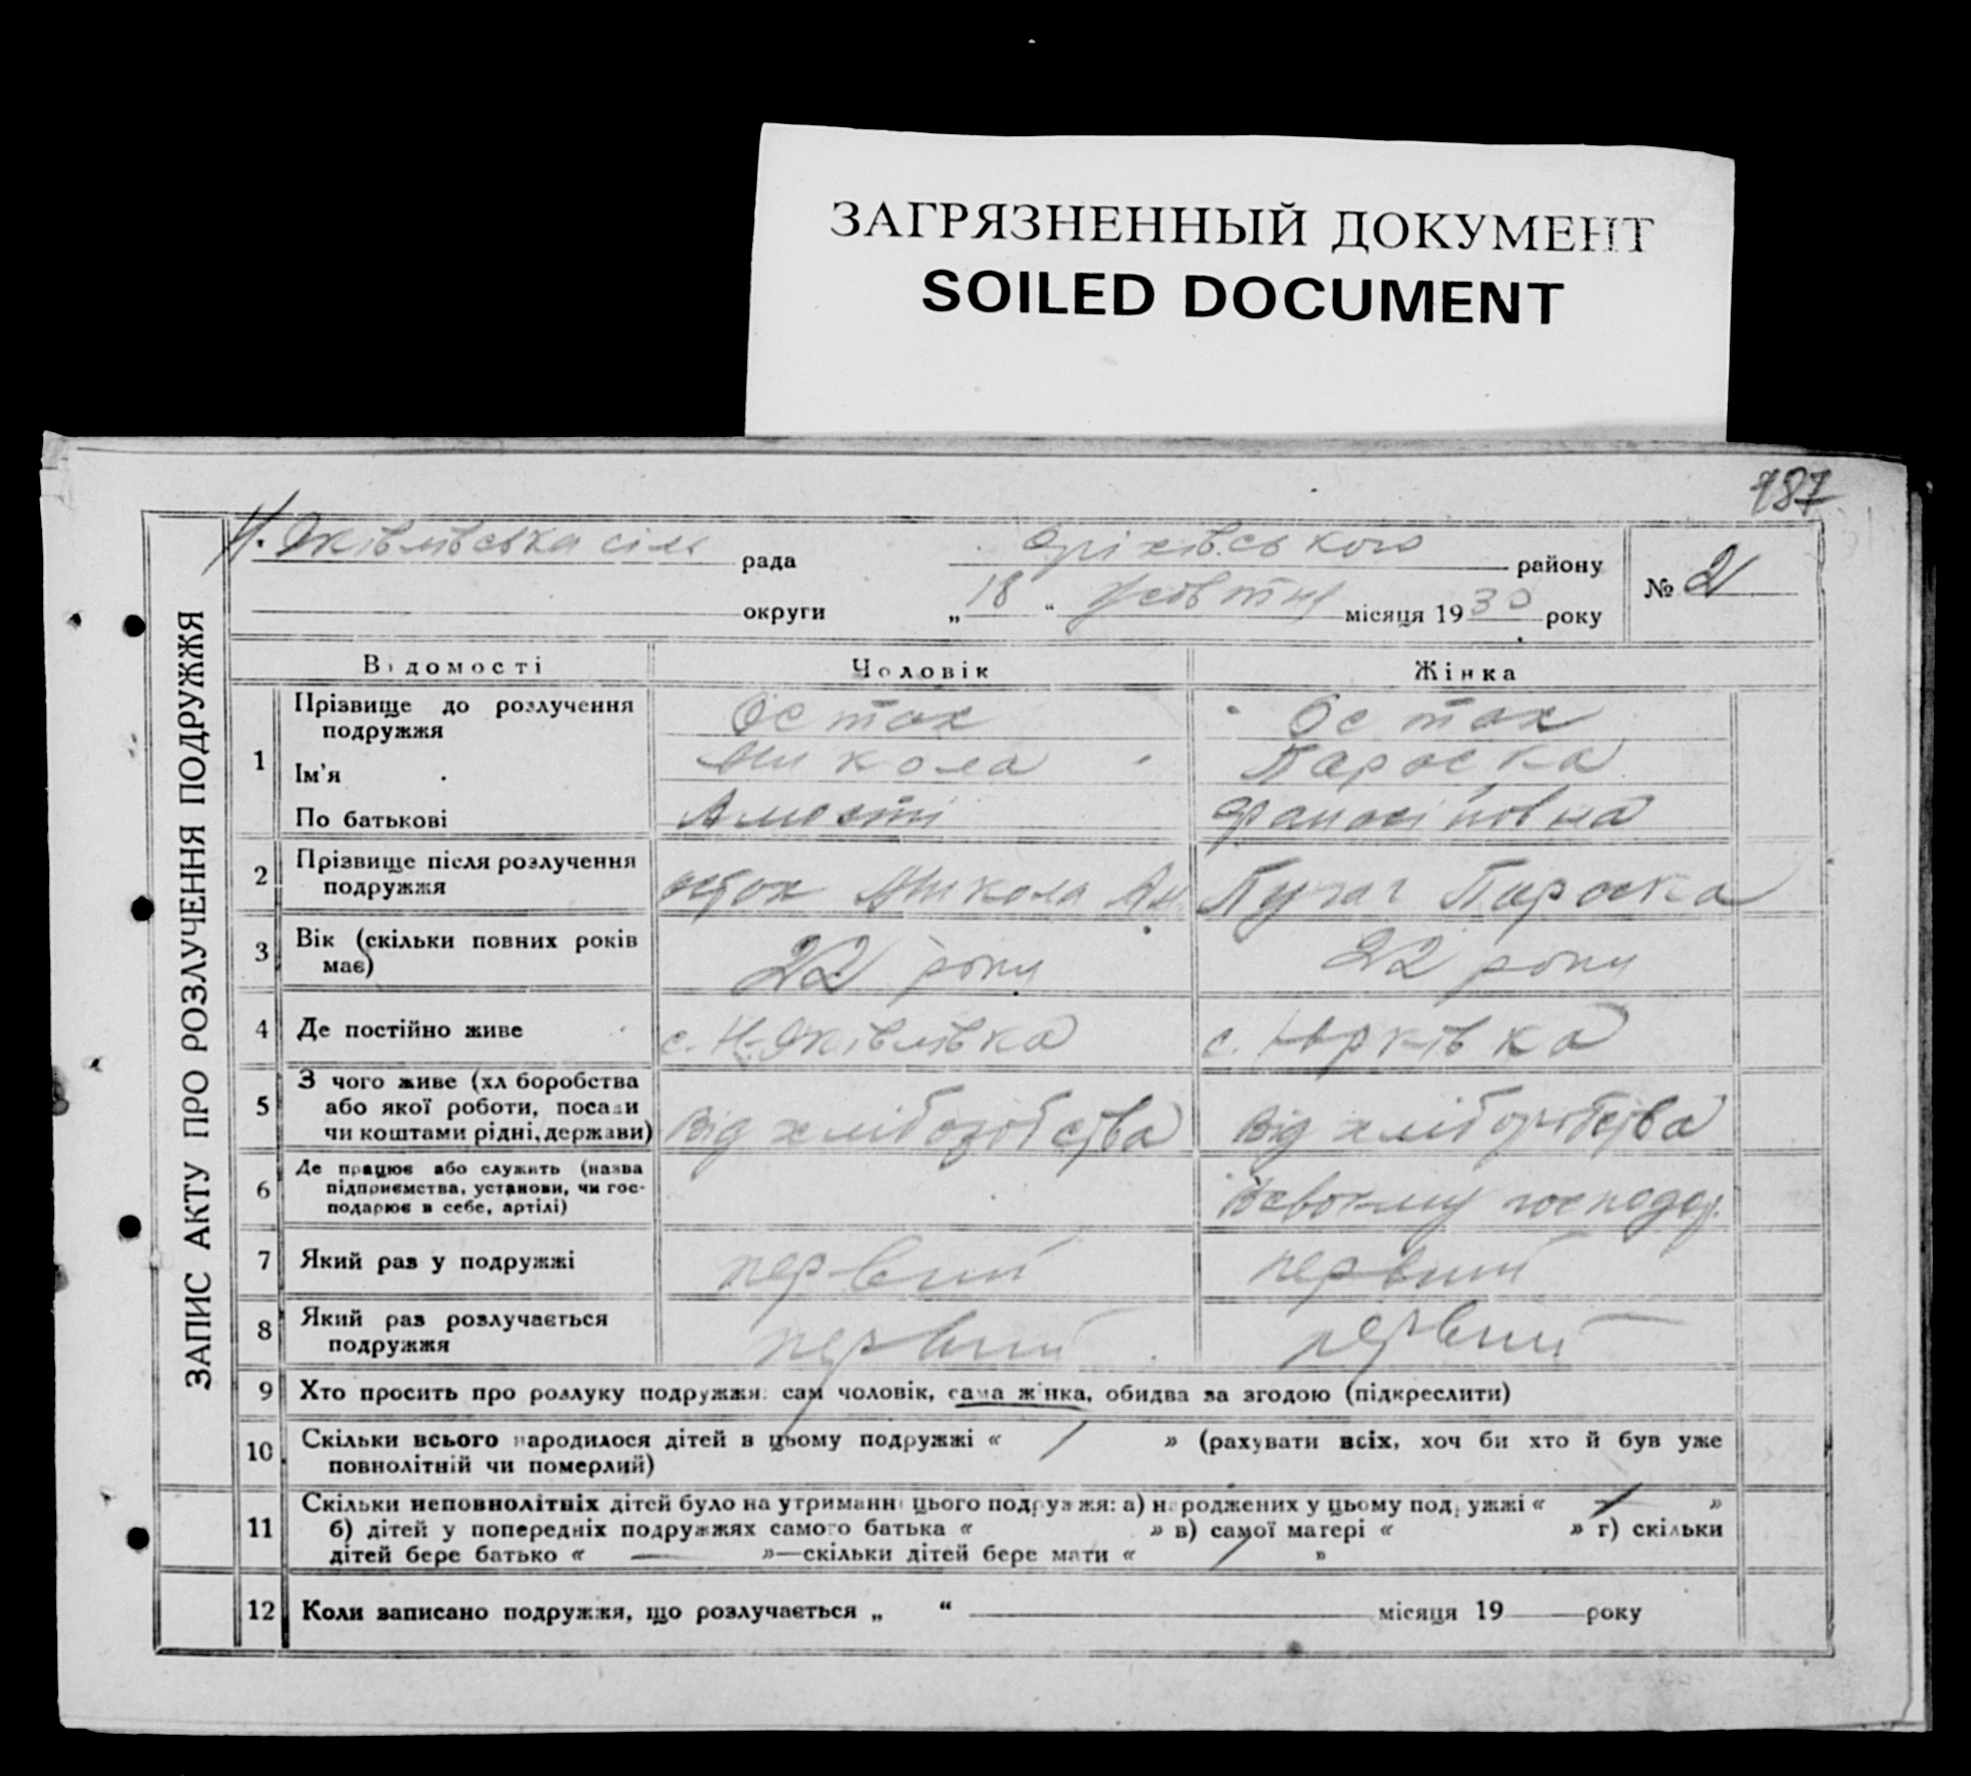 ЗАГРЯЗНЕННЫЙ ДОКУМЕНТ
SOILED DOCUMENT
187
ЗАПИС АКТУ ПРО РОЗЛУЧЕННЯ ПОДРУЖЖЯ
Н. Яківлівська сіль рада Оріхівського району
№ 2
округи „18“ жовтня місяця 1930 року
Відомості Чоловік Жінка
1 Прізвище до розлучення подружжя Остах Остах
Ім'я Микола Параска
По батькові Панасівна
2 Прізвище після розлучення подружжя Остах Микола Пугач Параска
3 Вік (скільки повних років має) 22 року 22 року
4 Де постійно живе с. Н-Яківлівка с. Юрківка
5 З чого живе (хліборобства або якої роботи, посади чи коштами рідні, держави) від хліборобства від хліборобства
6 Де працює або служить (назва підприємства, установи, чи господарює в себе, артілі) в своєму господар.
7 Який раз у подружжі первий первий
8 Який раз розлучається подружжя первий первий
9 Хто просить про розлуку подружжя: сам чоловік, сама жінка, обидва за згодою (підкреслити)
10 Скільки всього народилося дітей в цьому подружжі « / » (рахувати всіх, хоч би хто й був уже
повнолітній чи померлий)
11 Скільки неповнолітніх дітей було на утриманні цього подружжя: а) народжених у цьому подружжі « / »
б) дітей у попередніх подружжях самого батька « » в) самої матері « » г) скільки
дітей бере батько « — »—скільки дітей бере мати « / »
12 Коли записано подружжя, що розлучається „ “ місяця 19 року